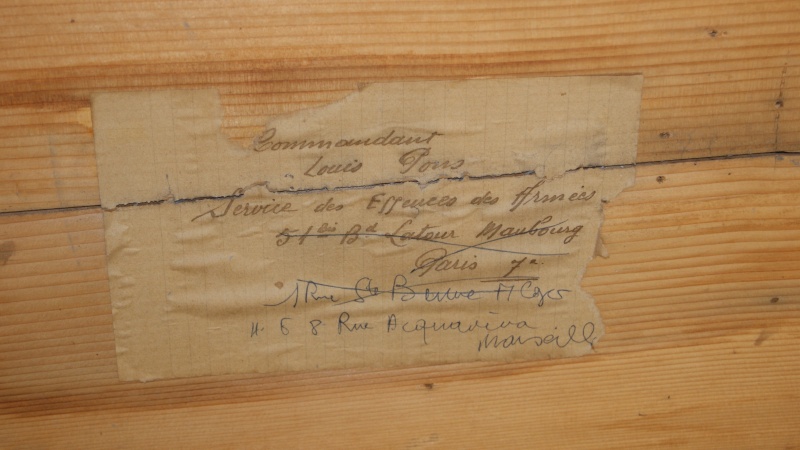 Commandant
Louis Pons
Service des Essences des Armées
51 bis Bd Latour Maubourg
Paris 7e
1 Rue Ste Alger
8 Rue Acquaviva
Marseille